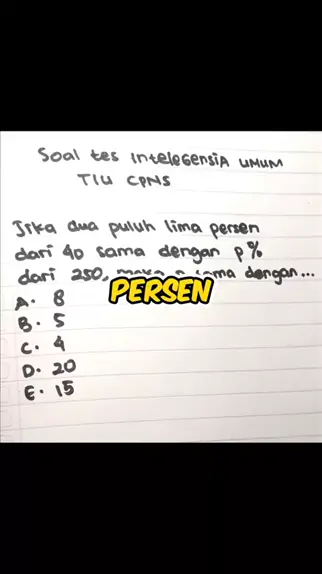 Soal tes intelegensia umum
TIU CPNS
Jika dua puluh lima persen
dari 40 sama dengan p%
dari 250, maka p sama dengan...
PERSEN
A. 8
B. 5
C. 4
D. 20
E. 15